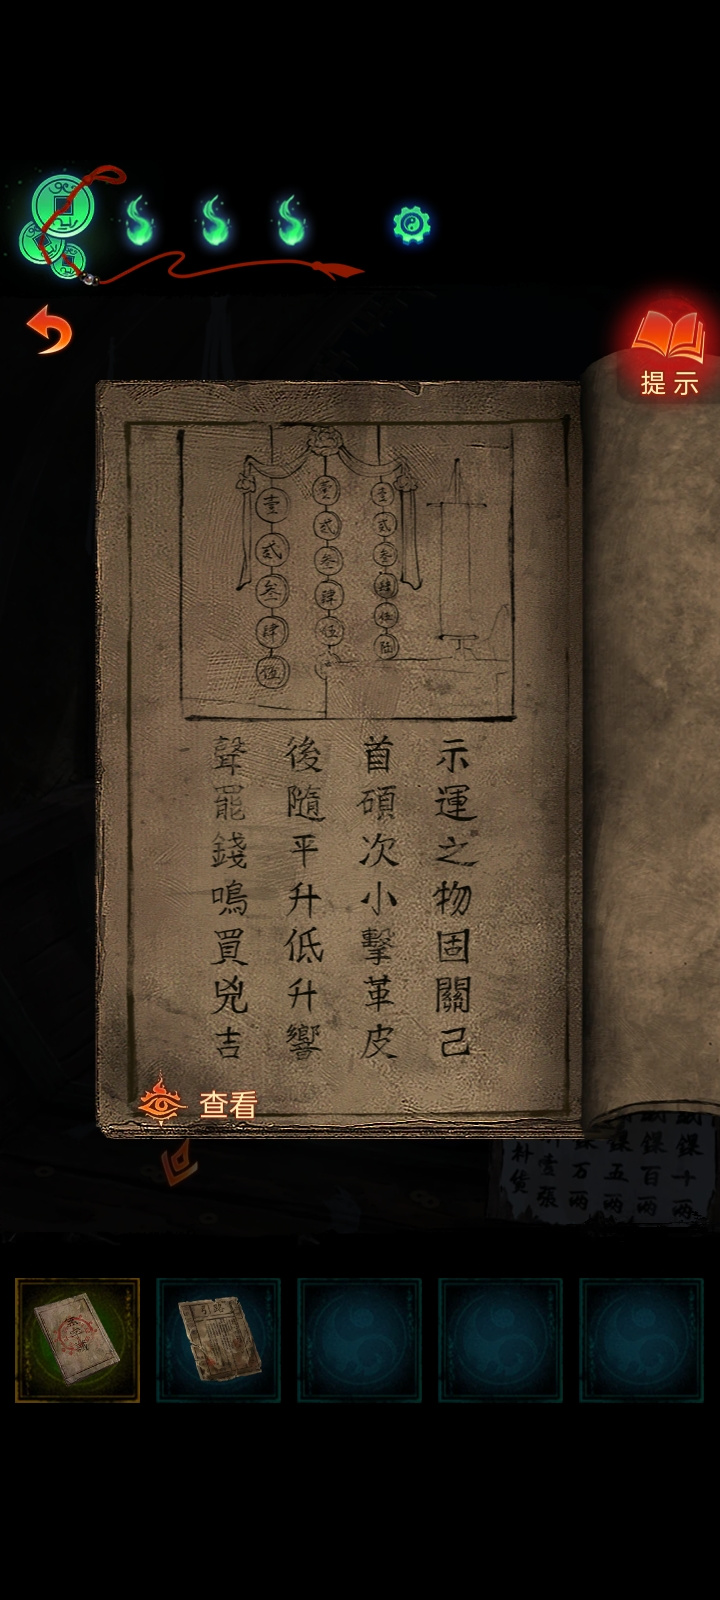 提示
壹
貳
叁
肆
伍
壹
貳
叁
肆
伍
壹
貳
叁
肆
伍
陆
示運之物固關己
首碩次小擊革皮
後隨平升低升響
聲罷錢鳴買兇吉
查看
十兩
百兩
五兩
万兩
壹張
引路